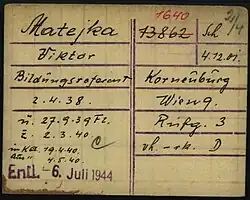 1640
Matejka 13862 Sch
Viktor 4.12.01.
Bildungsreferent Korneuburg
2.4.38. Wien
ü. 27.9.39 Fl. 3
z. 2.3.40
C vh. - rk. D
19.4.40.
4.5.40.
Entl. -6. Juli 1944